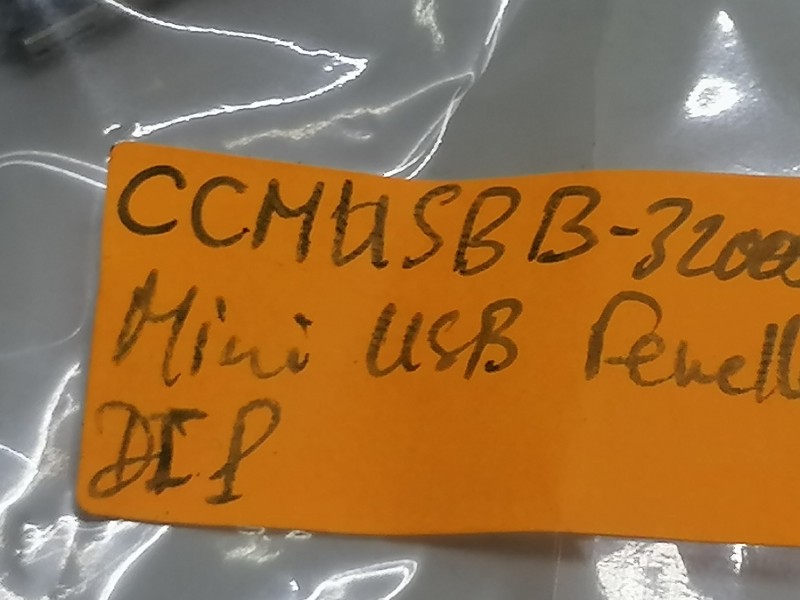 CCMUSBB-32000
Mini USB Femell
DIP